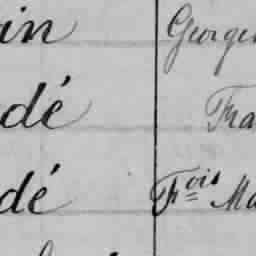 in Georges
dé Fra
dé Fois Ma